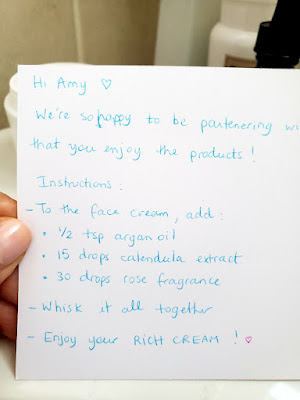 Hi Amy ♡
We're so happy to be partenering wi
that you enjoy the products!
Instructions:
- To the face cream, add:
• 1/2 tsp argan oil
• 15 drops calendula extract
• 30 drops rose fragrance
- Whisk it all together
- Enjoy your RICH CREAM! ♡